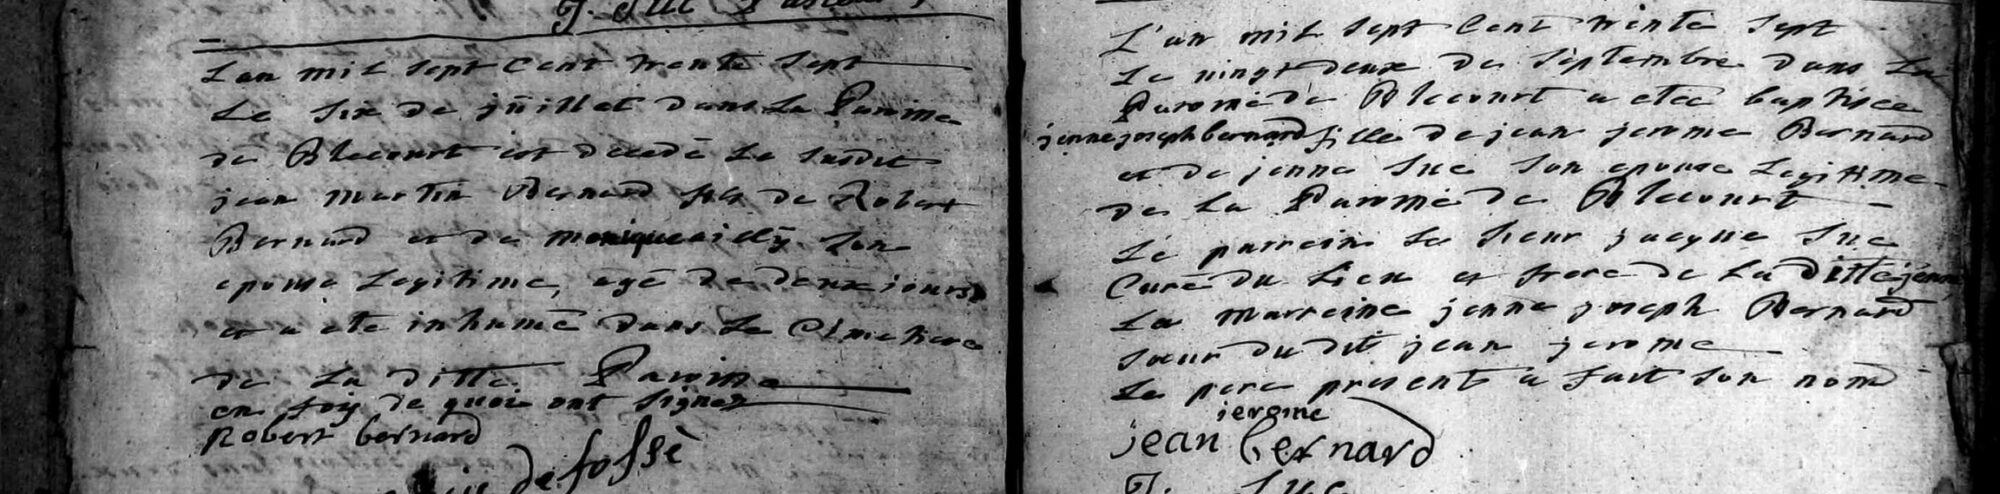 J. Suc
L'an mil sept Cent trente sept
Le six de juillet dans La Paroisse
de Blecourt est decedé Le susdit
jean martin Bernard fils de Robert
Bernard et de monique
son
epouse Legitime, agé de deux jours
et a eté inhumé dans Le Cimetiere
de La ditte Paroisse
en foÿ de quoi ont signez
Robert bernard
de fossè
L'an mil sept Cent trente sept
Le vingt deux de septembre dans La
Paroisse de Blecourt a eteé baptisée
jenne joseph bernard fille de jean jerome Bernard
et de jenne Suc son epouse Legitime
de La Paroisse de Blecourt
Le parrein Le sieur jacque Suc
Curé du Lieu et frere de La ditte jenne,
La marreine jenne joseph Bernard
sœur du dit jean jerome
Le pere present a fait son nom
jerome
jean bernard
J. Suc